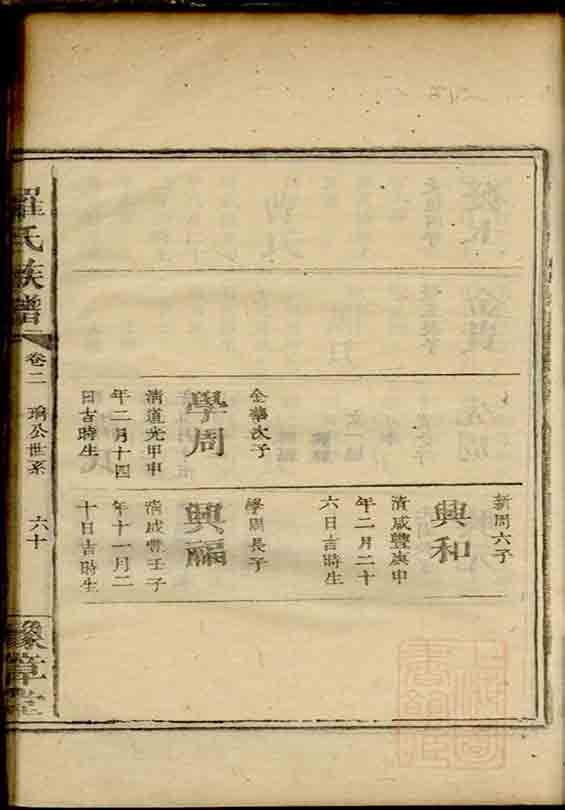 金華次子
學周
清道光甲申
年二月十四
日吉時生
新周六子
興和
清咸豐庚申
年二月二十
六日吉時生
學周長子
興
清咸豐壬子
年十一月二
十日吉時生
羅氏族譜
卷二
公世系
六十
豫章堂
上海圖書館藏